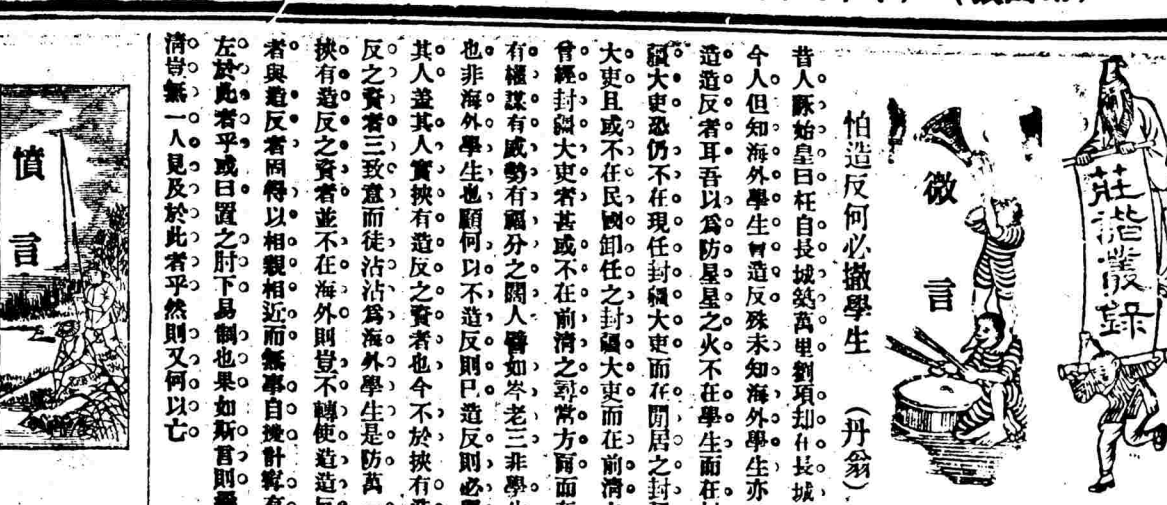 莊諧叢錄
微言
怕造反何必撤學生 (丹翁)
昔人詠始皇曰枉自長城築萬里劉項却在長城
今人但知海外學生會造反殊未知海外學生亦
造造反者耳吾以爲防星星之火不在學生而在
疆大吏恐仍不在現任封疆大吏而在閒居之封
大吏且或不在民國卸任之封疆大吏而在前清
曾經封疆大吏者甚或不在前清之尋常方面而
有權謀有威勢有福分之闊人譬如岑老三非學
也非海外學生也顧何以不造反則已造反則必
其人蓋其人實挾有造反之資者也今不於挾有
反之資者三致意而徒沾沾爲海外學生是防萬
挾有造反之資者並不在海外則豈不轉使造造
者與造反者因得以相親相近而無事自擾計寧有
左於此者乎或曰置之肘下易制也果如斯言則
清豈無一人見及於此者乎然則又何以亡
憤言